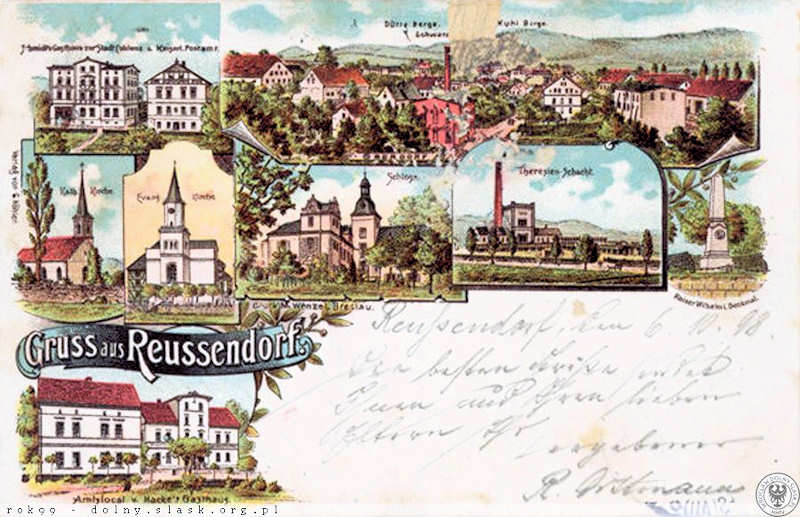 Schmidt's Gasthaus zur Stadt Coblenz u. Kaiserl. Postamt.
Dürre Berge.
Schwarz
Kuhl Birge.
Kath. Kirche.
Evang. Kirche
Schloss
Theresien-Schacht.
Kaiser Wilhelm I. Denkmal.
Verlag von
M. Wenzel, Breslau.
Gruss aus Reussendorf.
Reussendorf, den 6. 10. 98
Die besten Grüße sendet
Ihnen und Ihren lieben
Eltern Ihr
ergebener
R. Wittmann
Amtslocal u. Hacke's Gasthaus.
rok99 - dolny.slask.org.pl